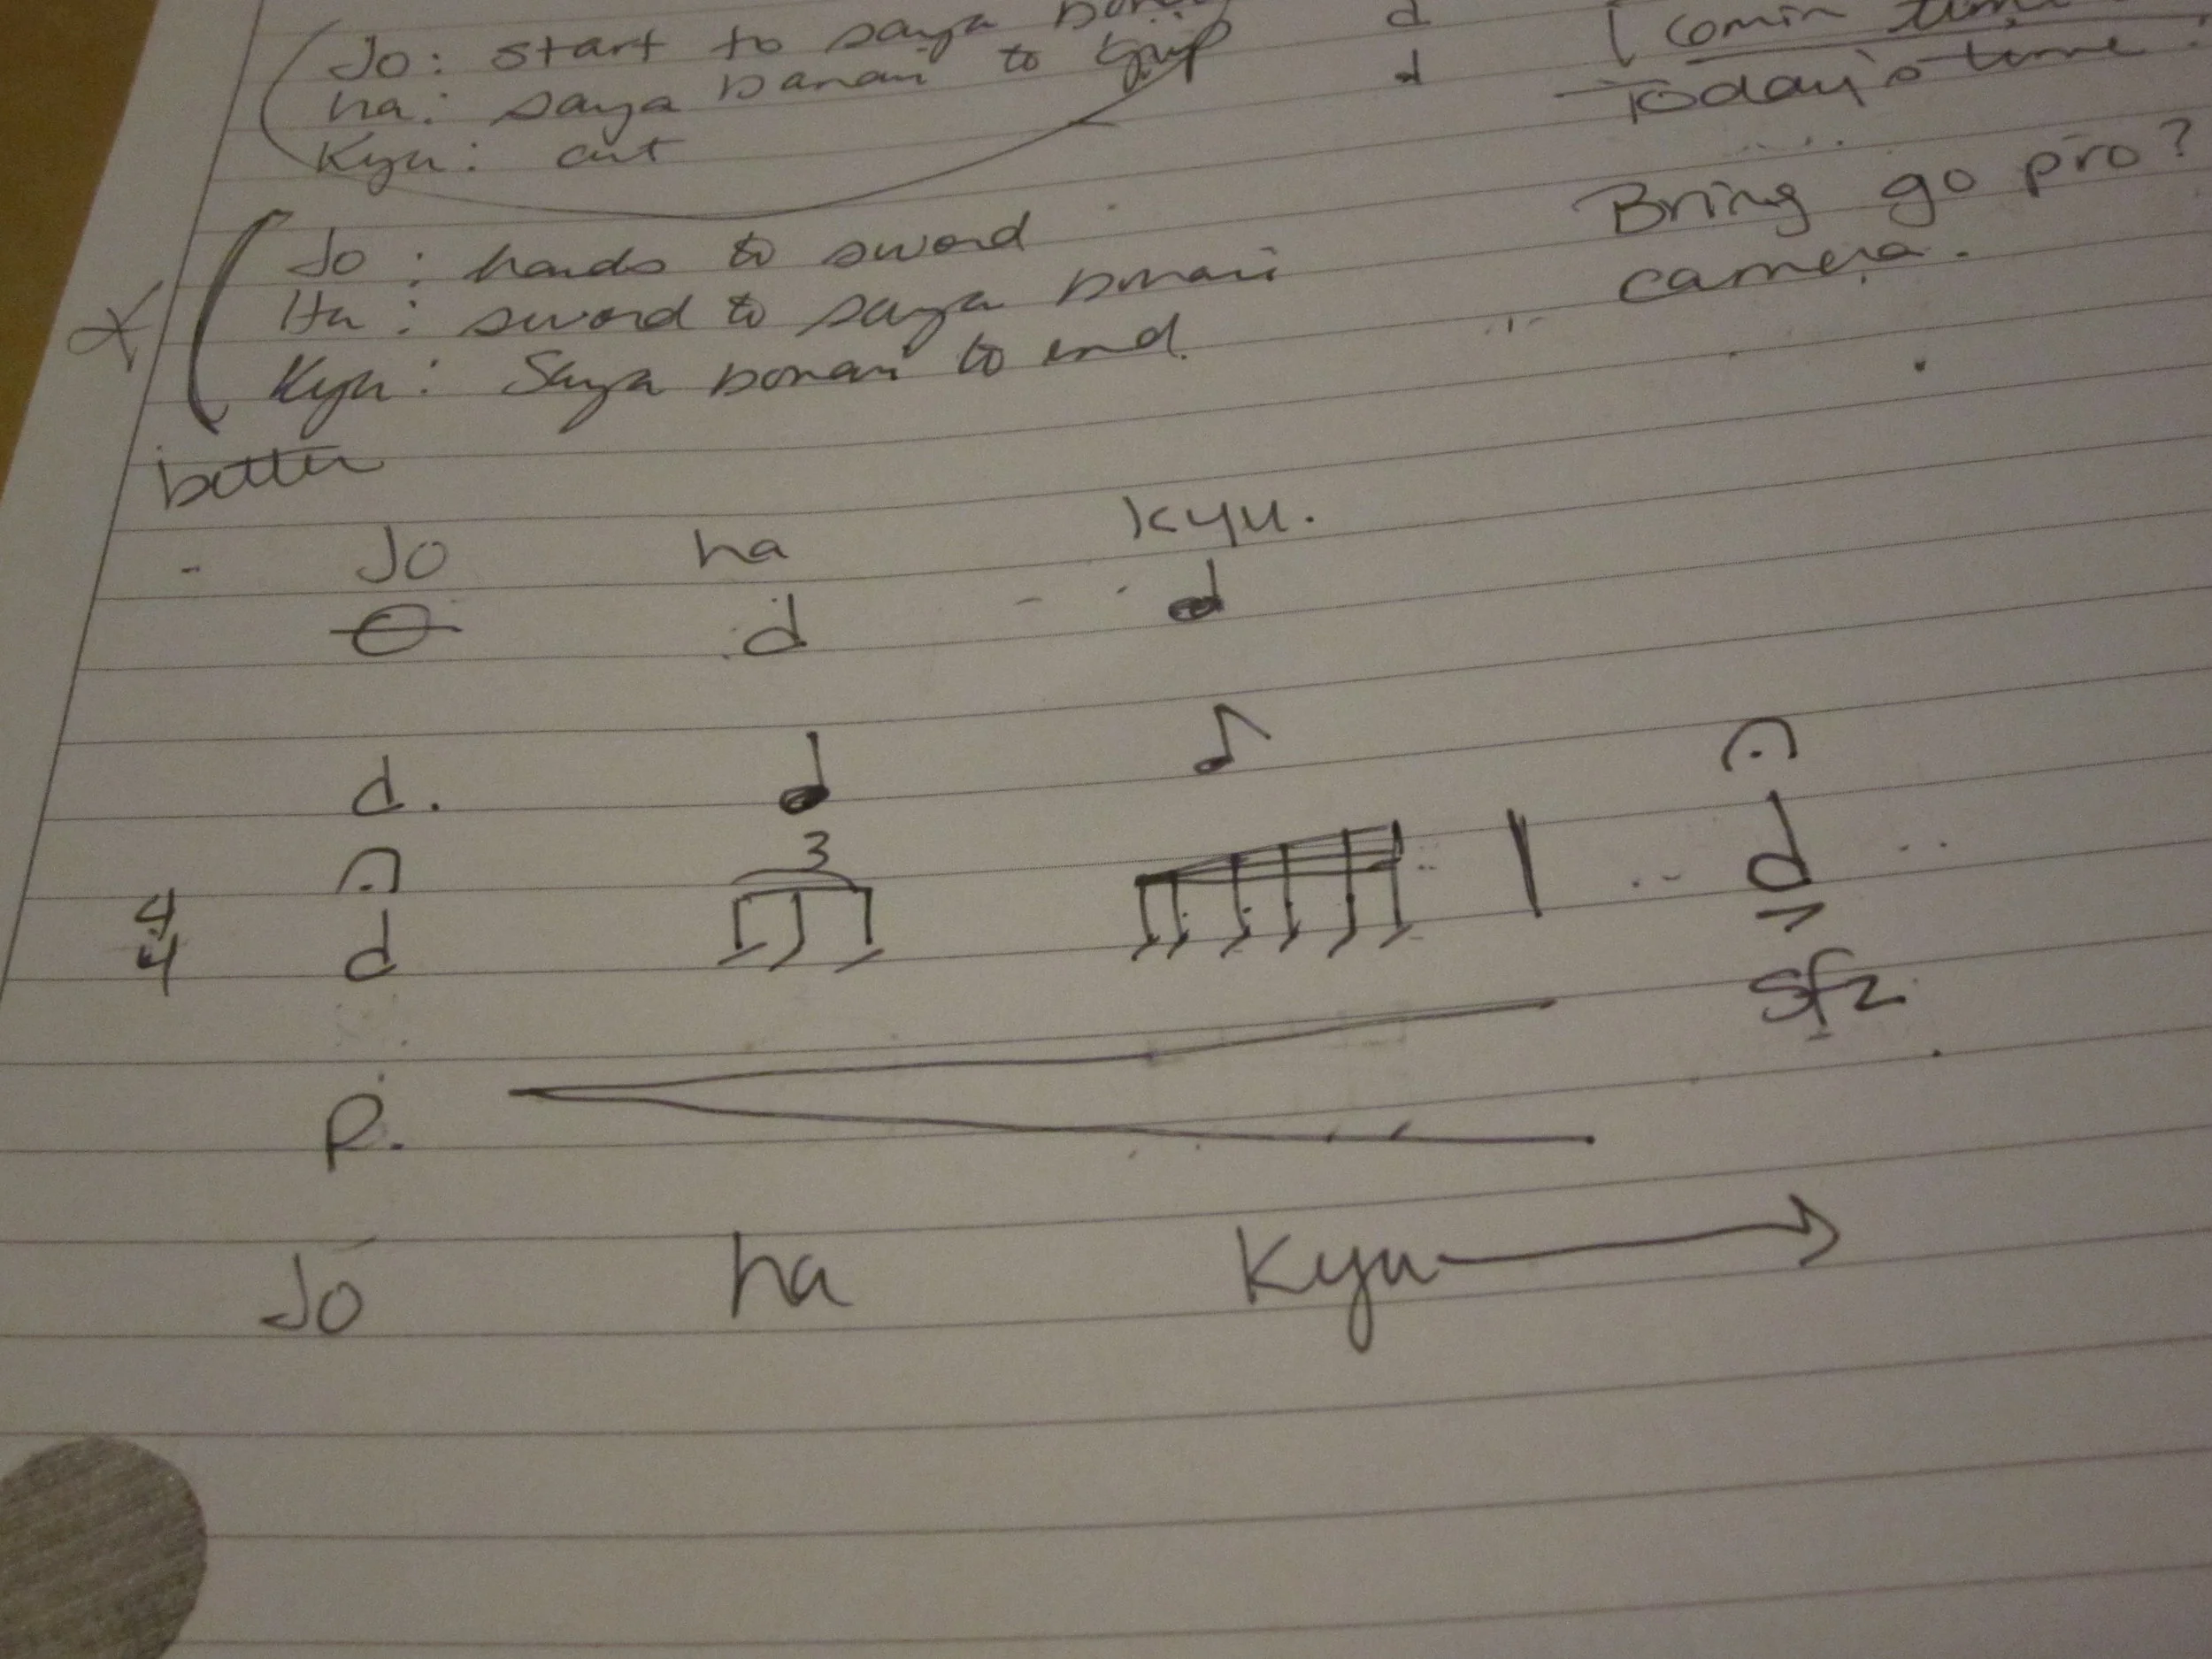 Jo: start to saya
ha: saya banari to
Kyu: cut
comin time
Today's time
Bring go pro?
camera.
Jo: hands to sword
Ha: sword to saya bonari
Kyu: Saya bonari to end.
better
Jo ha kyu.
3
4
4
sfz
P.
Jo ha Kyu